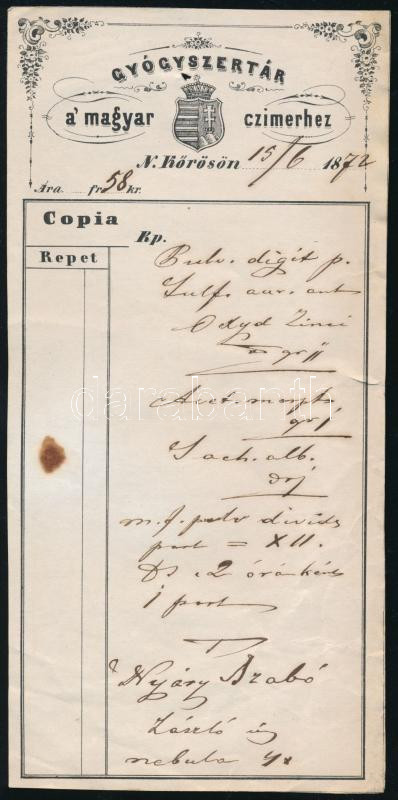 GYÓGYSZERTÁR
a' magyar czimerhez
N. Kőrösön 15/6 1872
Ára fr 58 kr.
Copia
Repet
Rp.
Pulv. digit p.
Sulf. aur. ant
Oxyd Zinci
gr jj
Acet. morph
gr j
Sach. alb.
dr j
m. f. pulv divide
part = XII.
DS. 2 óránként
1 port
Nyáry Szabó
László
darabanth